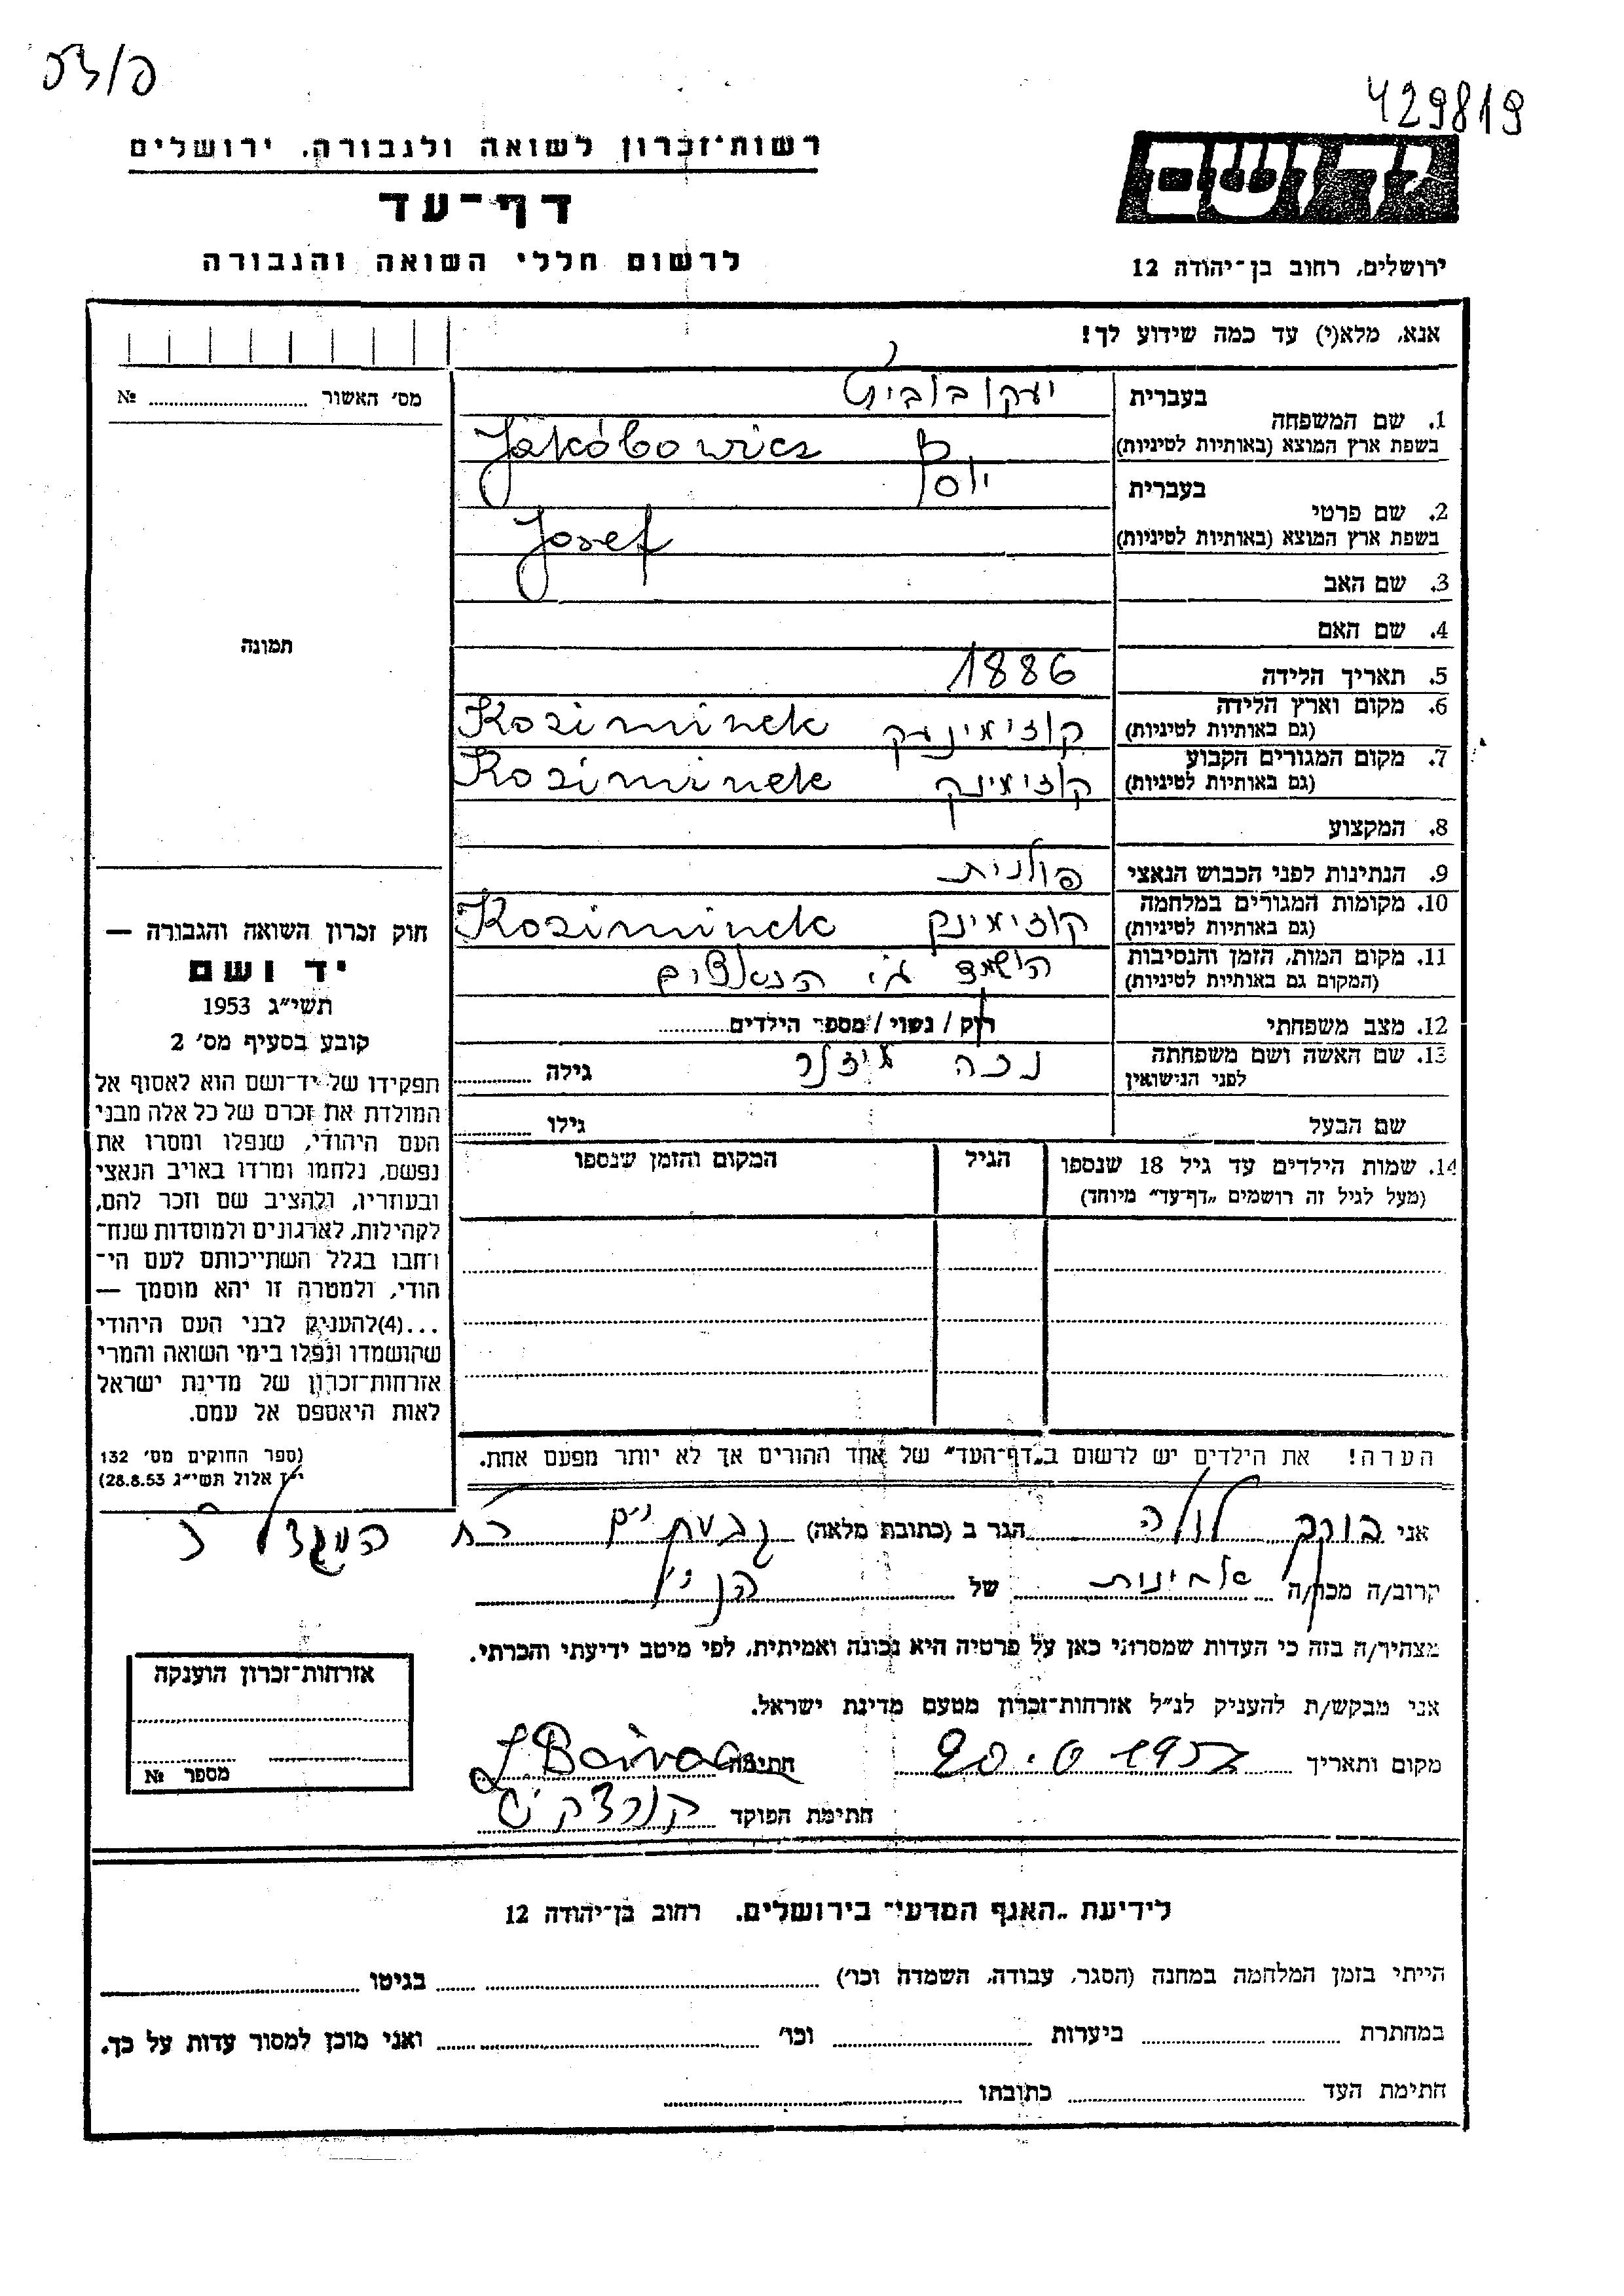 429819
רשות־זכרון לשואה ולגבורה, ירושלים
יד ושם
דף־עד
לרשום חללי השואה והגבורה
ירושלים, רחוב בן־יהודה 12
אנא, מלא(י) עד כמה שידוע לך!
מס׳ האשור № 
1. שם המשפחה בעברית יעקובוביץ
בשפת ארץ המוצא (באותיות לטיניות) Jakóbowicz
2. שם פרטי בעברית יוסף
בשפת ארץ המוצא (באותיות לטיניות) Josef
3. שם האב
4. שם האם
תמונה
5. תאריך הלידה 1886
6. מקום וארץ הלידה (גם באותיות לטיניות) קוזימינעק Koziminek
7. מקום המגורים הקבוע (גם באותיות לטיניות) קוזימינק Koziminek
8. המקצוע
9. הנתינות לפני הכבוש הנאצי פולנית
10. מקומות המגורים במלחמה (גם באותיות לטיניות) קוזימינק Koziminek
11. מקום המות, הזמן והנסיבות (המקום גם באותיות לטיניות) הושמד ע״י הנאצים
12. מצב משפחתי רווק / נשוי / מספר הילדים
13. שם האשה ושם משפחתה לפני הנישואין גילה
שם הבעל גילו
14. שמות הילדים עד גיל 18 שנספו הגיל המקום והזמן שנספו
(מעל לגיל זה רושמים „דף־עד״ מיוחד)
הערה! את הילדים יש לרשום ב„דף־העד״ של אחד ההורים אך לא יותר מפעם אחת.
חוק זכרון השואה והגבורה —
יד ושם
תשי״ג 1953
קובע בסעיף מס׳ 2
תפקידו של יד־ושם הוא לאסוף אל
המולדת את זכרם של כל אלה מבני
העם היהודי, שנפלו ומסרו את
נפשם, נלחמו ומרדו באויב הנאצי
ובעוזריו, ולהציב שם וזכר להם,
לקהילות, לארגונים ולמוסדות שנח־
רבו בגלל השתייכותם לעם הי־
הודי, ולמטרה זו יהא מוסמך —
...(4)להעניק לבני העם היהודי
שהושמדו ונפלו בימי השואה והמרי
אזרחות־זכרון של מדינת ישראל
לאות היאספם אל עמם.
(ספר החוקים מס׳ 132
י״ז אלול תשי״ג 28.8.53)
אני לולה הגר ב (כתובת מלאה) גבעתיים רח
קרוב/ה מכר/ה אחינות של הנ״ל
מצהיר/ה בזה כי העדות שמסרתי כאן על פרטיה היא נכונה ואמיתית, לפי מיטב ידיעתי והכרתי.
אני מבקש/ת להעניק לנ״ל אזרחות־זכרון מטעם מדינת ישראל.
מקום ותאריך חתימה
חתימת הפוקד
אזרחות־זכרון הוענקה
מספר №
לידיעת „האגף המדעי״ בירושלים, רחוב בן־יהודה 12
הייתי בזמן המלחמה במחנה (הסגר, עבודה, השמדה וכו׳) בגיטו
במחתרת ביערות וכו׳ ואני מוכן למסור עדות על כך.
חתימת העד כתובתו